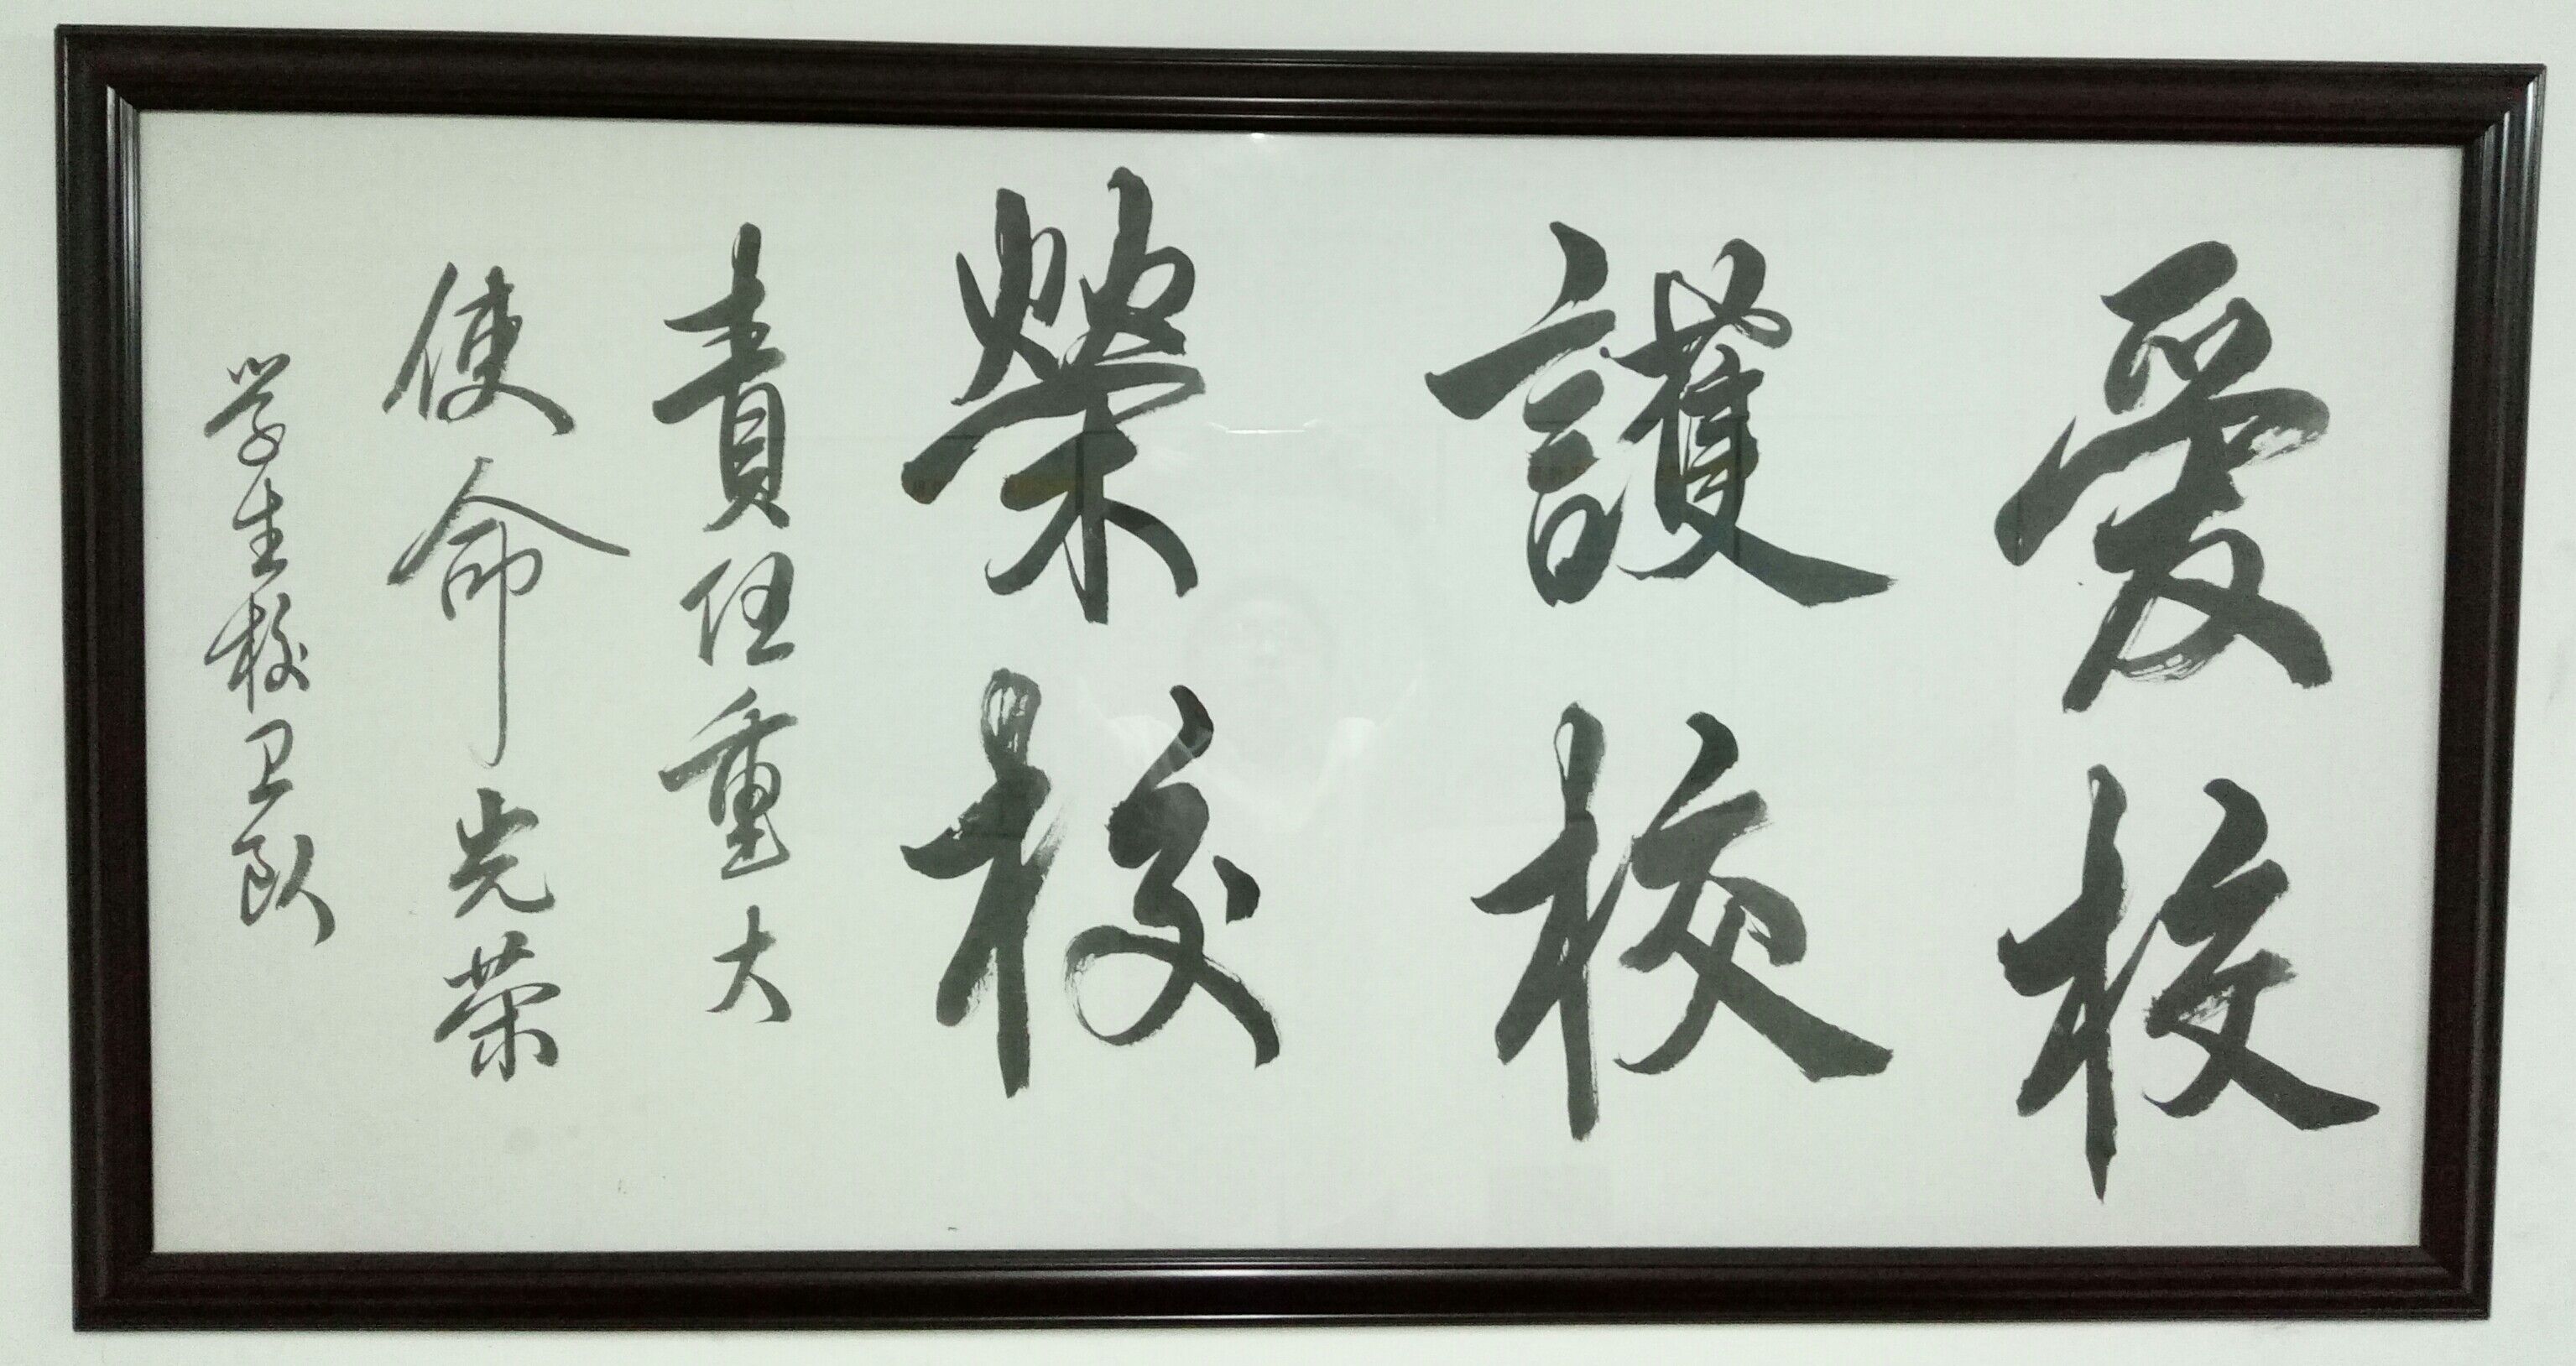 爱校
護校
榮校
責任重大
使命光荣
学生校卫队